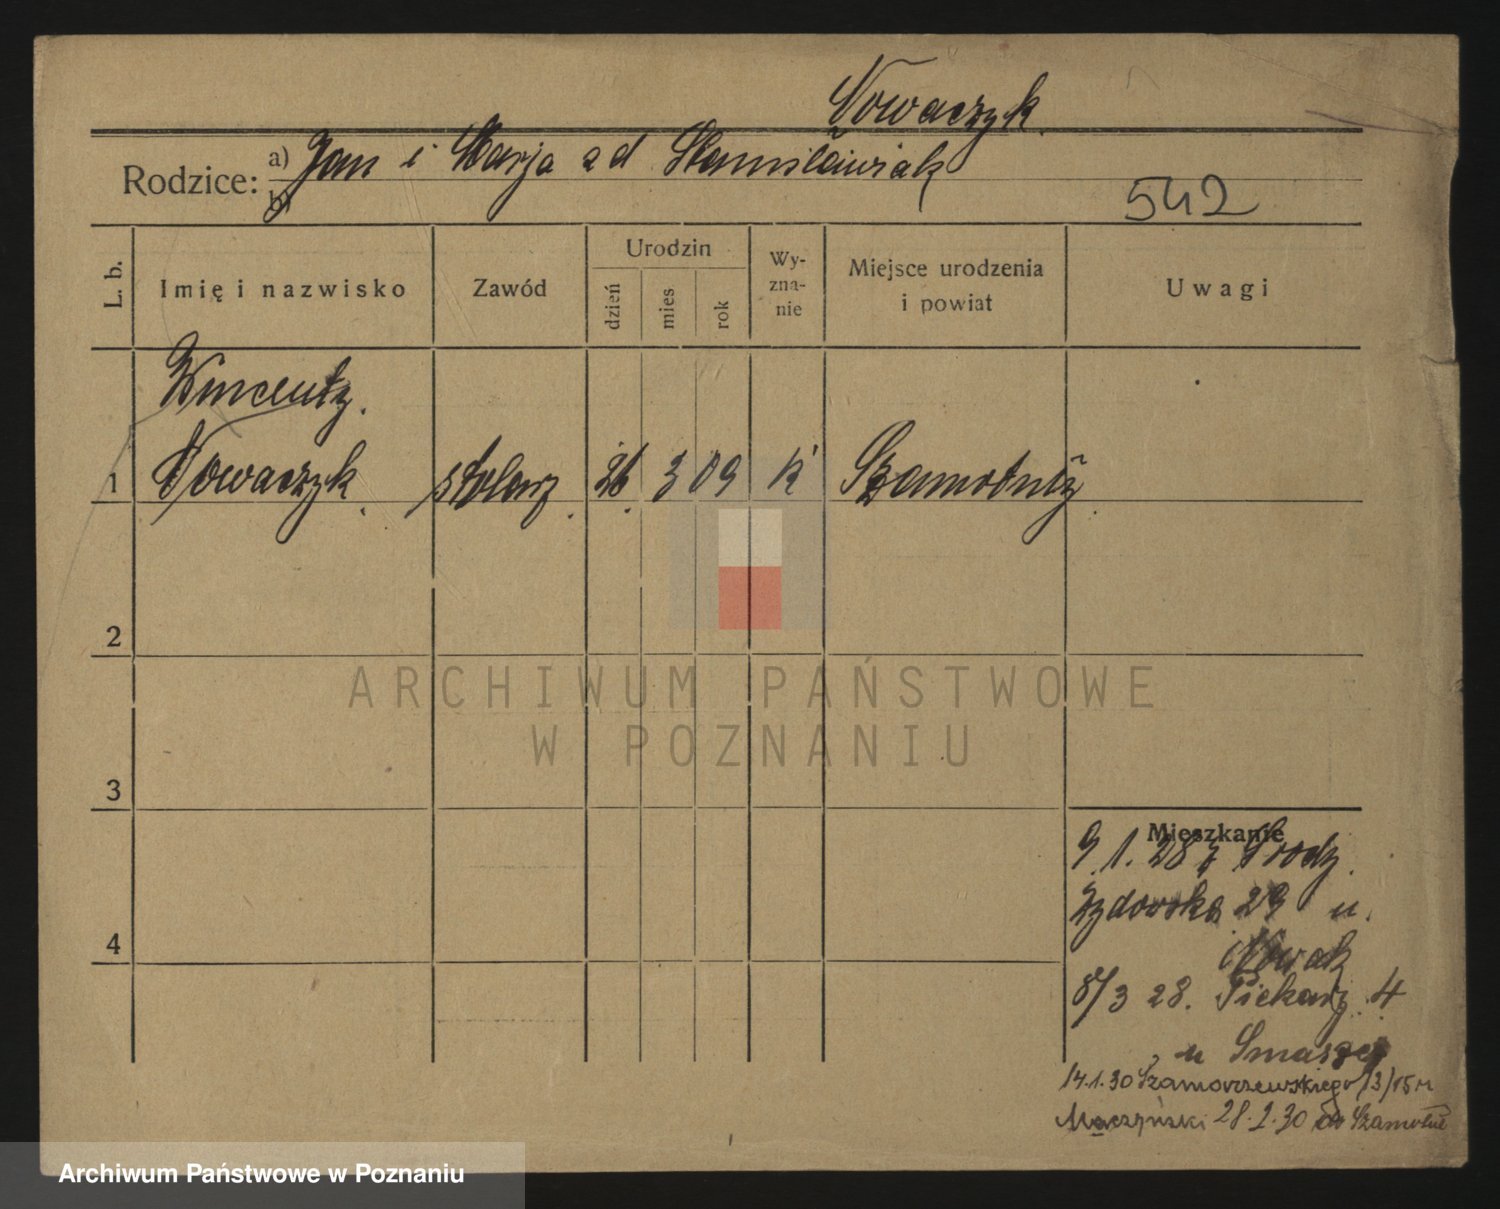 Nowaczyk
Rodzice: a) Jan i Marja zd Stanisławiak
b)
542
L. b.
Imię i nazwisko
Zawód
Urodzin
dzień
mies
rok
Wy-
zna-
nie
Miejsce urodzenia
i powiat
Uwagi
Wincenty.
1 Nowaczyk. stolarz. 26. 3 09 k Szamotuły.
2
3
4
Mieszkanie
9.1.28 z Środy.
29 u.
Nowak
8/3 28. Piekary. 4
u
14.1.30 Szamorzewskiego 13/15 u
Mączyński 28.2.30 do Szamotuł
ARCHIWUM PAŃSTWOWE
W POZNANIU
Archiwum Państwowe w Poznaniu